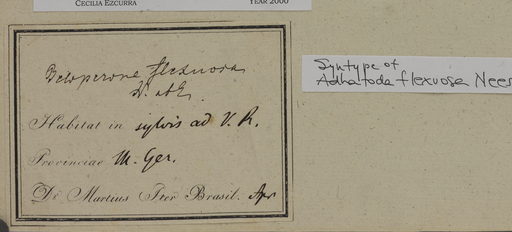 CECILIA EZCURRA YEAR 2000
Beloperone flexuosa
N. ab E.
Habitat in sylvis ad V. R.
Provinciae M. Ger.
Dr Martius Iter Brasil. Apr
Syntype of
Adhatoda flexuosa Nees